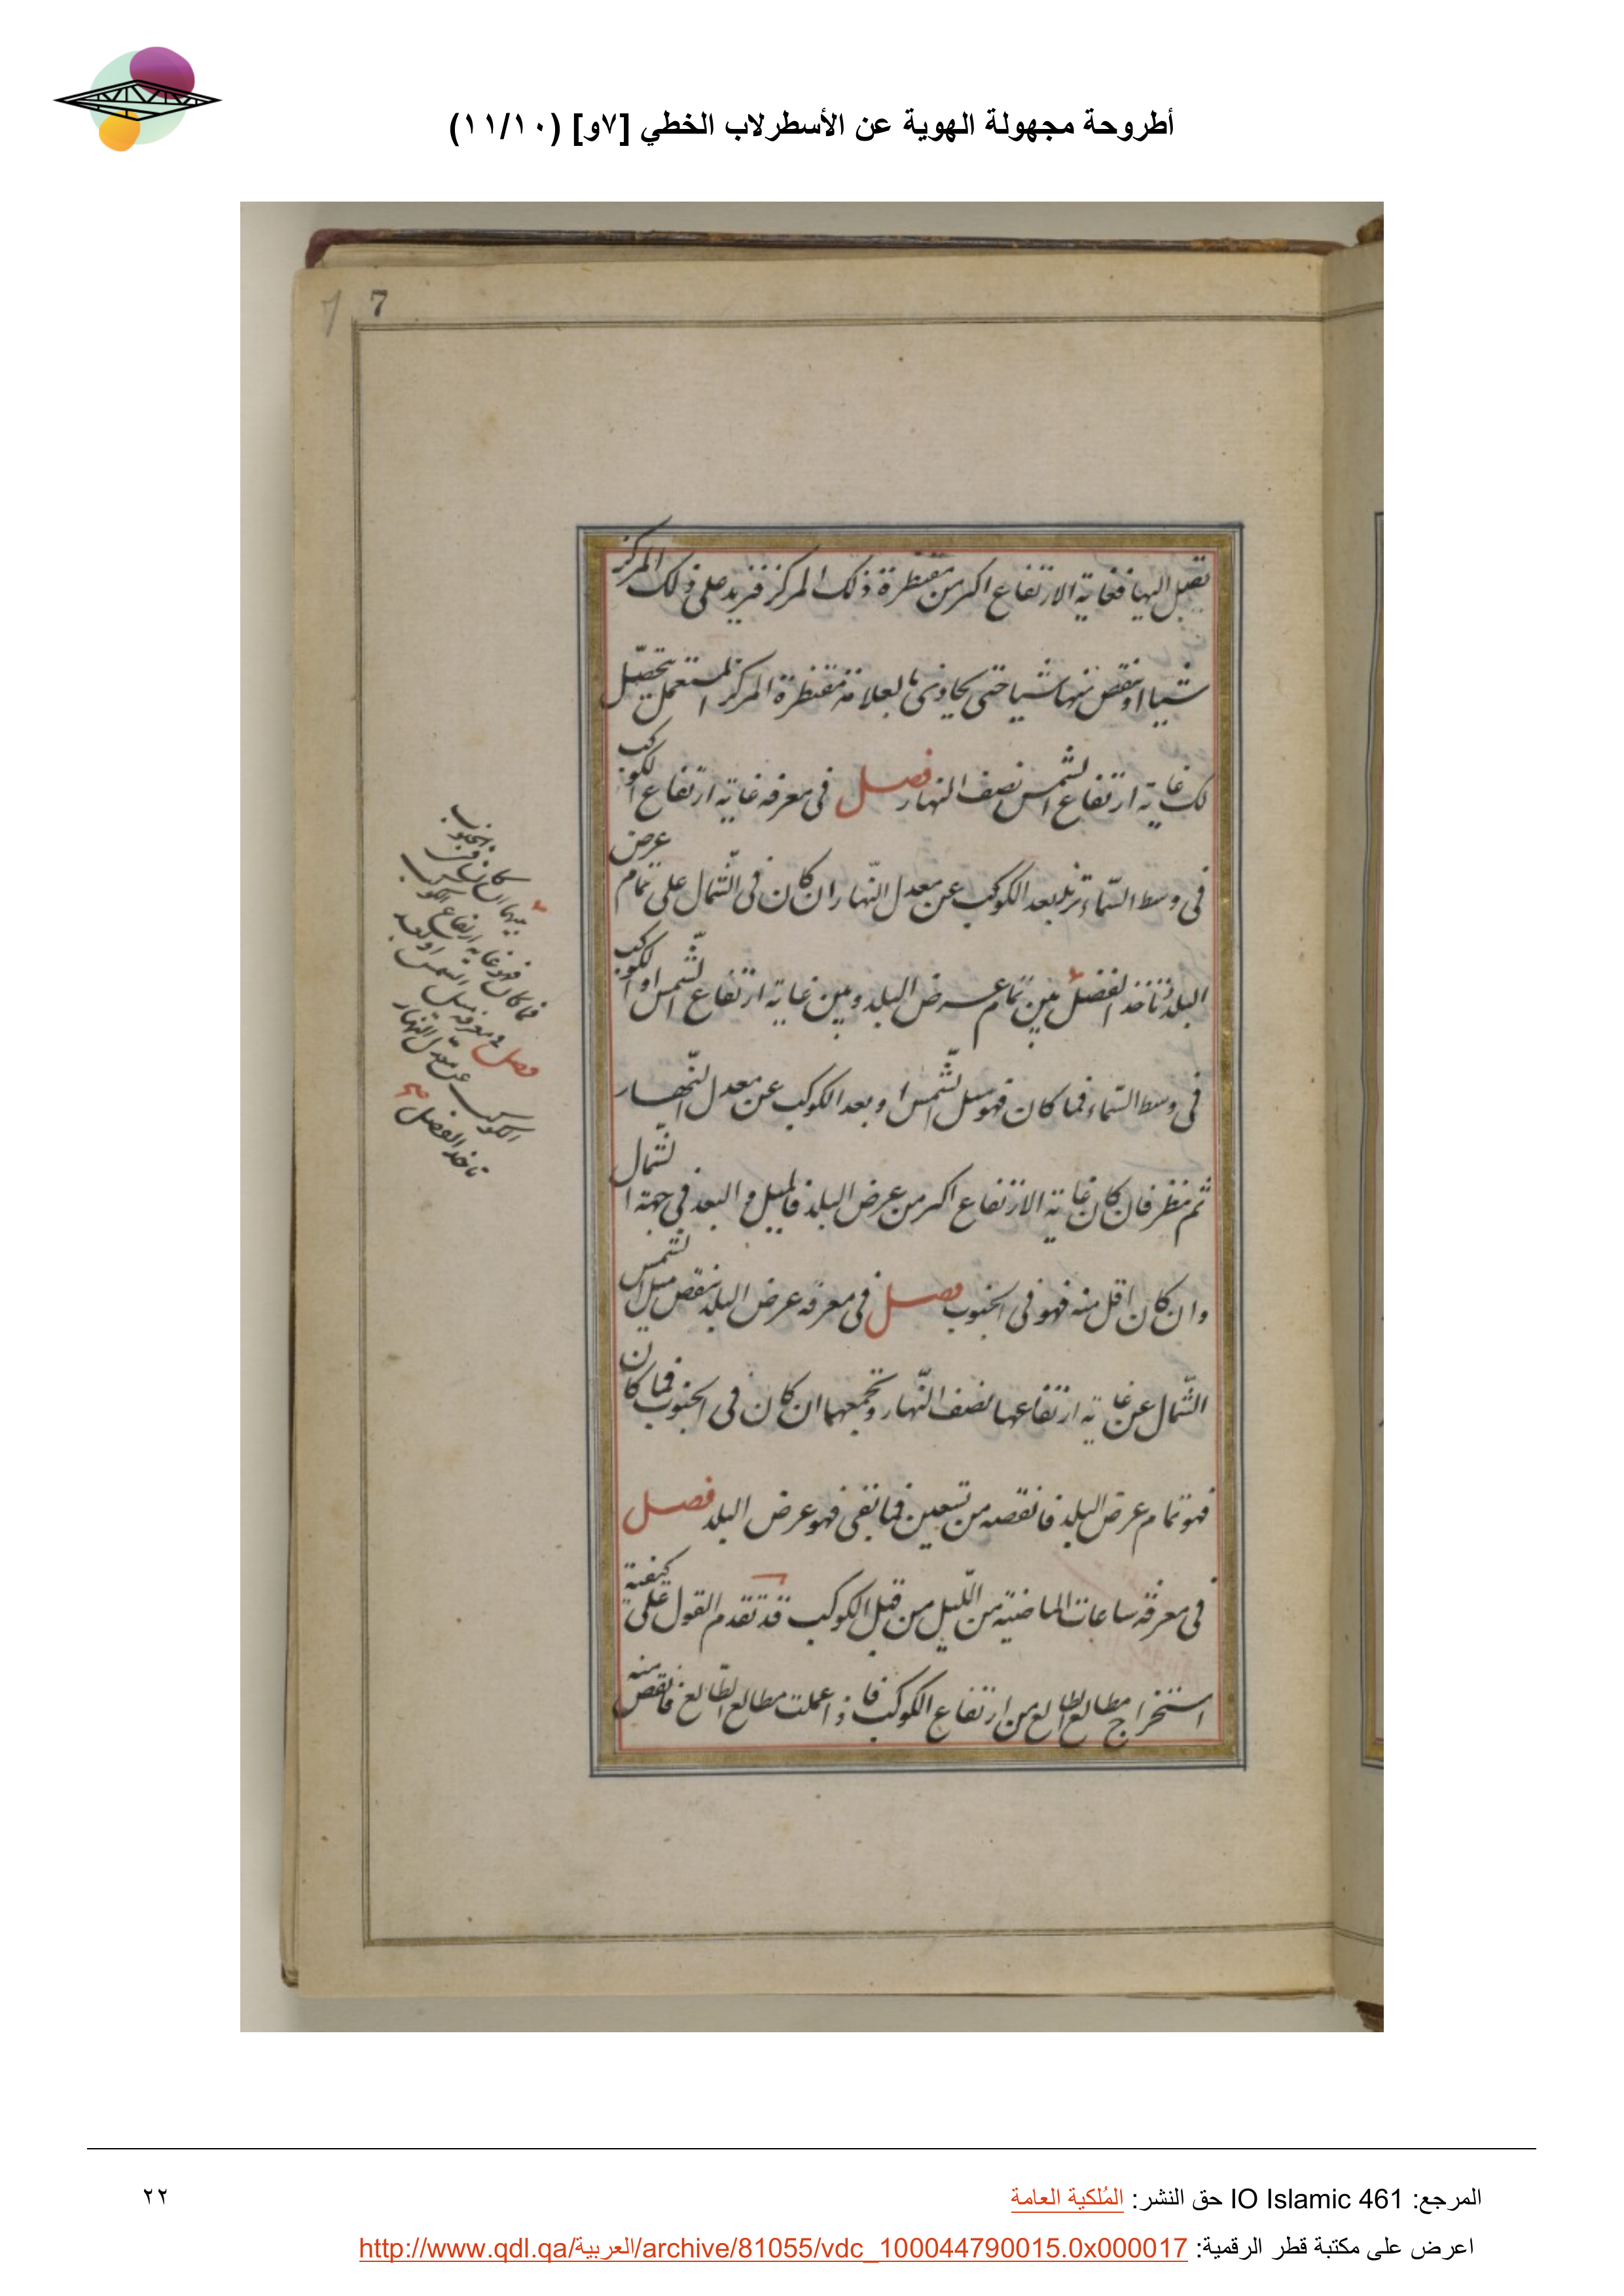 أطروحة مجهولة الهوية عن الأسطرلاب الخطي [٧و] (١١/١٠)
7 7
تصل اليها فغاية الارتفاع اكثر من مقنطرة ذلك المركز فنزيد على ذلك المركز
شيا او ننقص منها شيا حتى يحاذى بالعلامة مقنطرة المركز المستعمل يتحصّل
لك غاية ارتفاع الشمس نصف النهار فصل فى معرفه غاية ارتفاع الكوكب
فى وسط السّماء تزيد بعد الكوكب عن معدل النّهار ان كان فى الشّمال على تمام عرض
البلد تأخذ الفضل بين تمام عرض البلد وبين غاية ارتفاع الشّمس او الكوكب
فى وسط السّماء فما كان فهو ميل الشّمس او بعد الكوكب عن معدل النّهار
ثم ننظر فان كان غاية الارتفاع اكثر من عرض البلد فالميل والبعد فى جهة الشمال
وان كان اقل منه فهو فى الجنوب فصل فى معرفه عرض البلد ننقص ميل الشمس
الشّمال عن غاية ارتفاعها نصف النّهار ونجمعهما ان كان فى الجنوب فما كان
فهو تمام عرض البلد فانقصه من تسعين فما بقى فهو عرض البلد فصل
فى معرفه ساعات الماضية من اللّيل من قبل الكوكب قد تقدم القول على كيفية
استخراج مطالع الطالع من ارتفاع الكوكب فاذا عملت مطالع الطّالع فانقص منه
بينهما ان كان فى الجنوب
فما كان فهو غاية ارتفاع الكوكب
فصل فى معرفه ميل الشمس او بعد
الكوكب عن معدل النهار
تاخذ الفضل
المرجع: IO Islamic 461 حق النشر: المُلكية العامة
٢٢
اعرض على مكتبة قطر الرقمية: http://www.qdl.qa/العربية/archive/81055/vdc_100044790015.0x000017